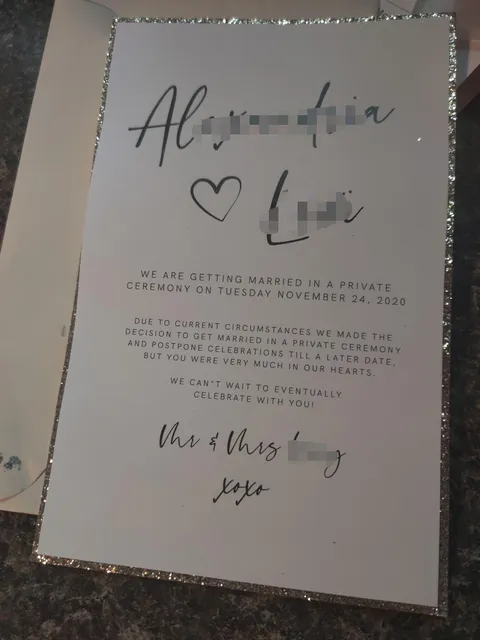 WE ARE GETTING MARRIED IN A PRIVATE
CEREMONY ON TUESDAY NOVEMBER 24, 2020
DUE TO CURRENT CIRCUMSTANCES WE MADE THE
DECISION TO GET MARRIED IN A PRIVATE CEREMONY
AND POSTPONE CELEBRATIONS TILL A LATER DATE,
BUT YOU WERE VERY MUCH IN OUR HEARTS.
WE CAN'T WAIT TO EVENTUALLY
CELEBRATE WITH YOU!
Mr & Mrs
xoxo